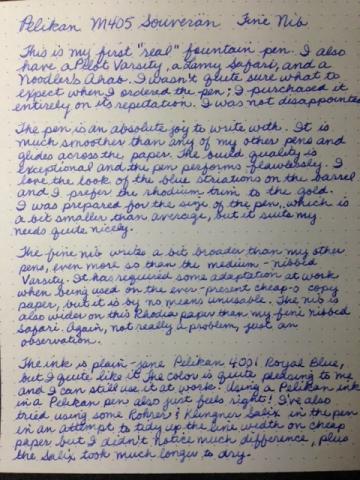 Pelikan M405 Souverän Fine Nib
This is my first "real" fountain pen. I also
have a Pilot Varsity, a Lamy Safari, and a
Noodler's Ahab. I wasn't quite sure what to
expect when I ordered the pen; I purchased it
entirely on its reputation. I was not disappointed
The pen is an absolute joy to write with. It is
much smoother than any of my other pens and
glides across the paper. The build quality is
exceptional and the pen performs flawlessly. I
love the look of the blue striations on the barrel
and I prefer the rhodium trim to the gold.
I was prepared for the size of the pen, which is
a bit smaller than average, but it suits my
needs quite nicely.
The fine nib writes a bit broader than my other
pens, even more so than the medium-nibbed
Varsity. It has required some adaptation at work
when being used on the ever-present cheap-o copy
paper, but it is by no means unusable. The nib is
also wider on this Rhodia paper then my fine nibbed
Safari. Again, not really a problem, just an
observation.
The ink is plain-jane Pelikan 4001 Royal Blue,
but I quite like it. The color is quite pleasing to me
and I can still use it at work. Using a Pelikan ink
in a Pelikan pen also just feels right! I've also
tried using some Rohrer & Klingner Salix in the pen
in an attempt to tidy up the line width on cheap
paper but I didn't notice much difference, plus
the Salix took much longer to dry.